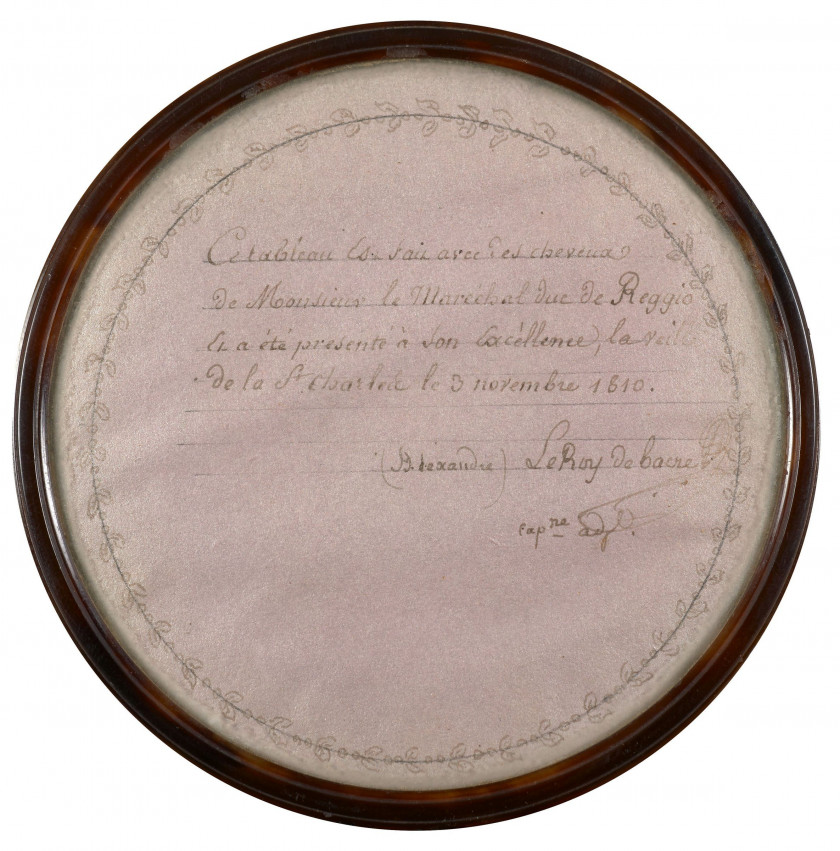 Ce tableau Est fait avec des cheveux
De Monsieur le Maréchal duc de Reggio
Et a été presenté à Son Excéllence, la veille
de la St. Charles le 3 novembre 1810.
(Alexandre) LeRoy de bacre
capne adjt.